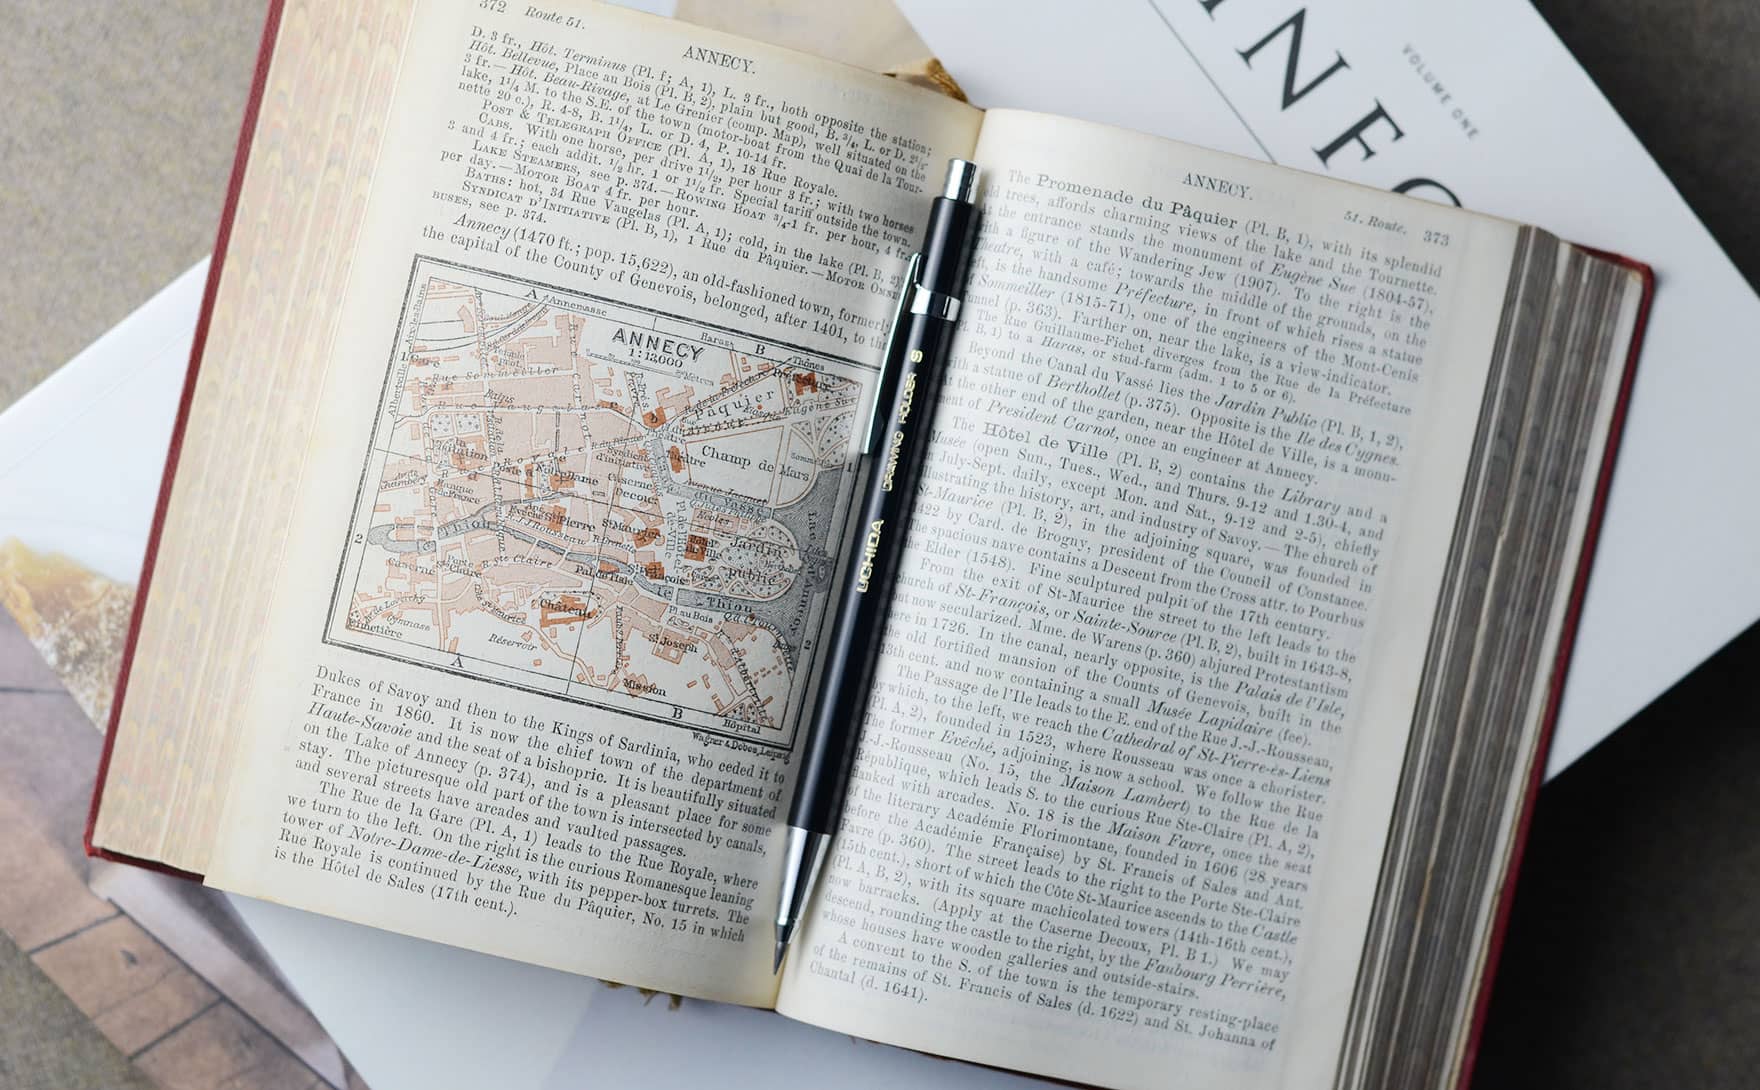 372 Route 51.
ANNECY.
D. 3 fr., Hôt. Terminus (Pl. f; A, 1), L. 3 fr., both opposite the station;
Hôt. Bellevue, Place au Bois (Pl. B, 2), plain but good, B. ¾, L. or D. 2½-
3 fr. — Hôt. Beau-Rivage, at Le Grenier (comp. Map), well situated on the
lake, 1¼ M. to the S.E. of the town (motor-boat from the Quai de la Tour-
nette 20 c.), R. 4-8, B. 1¼, L. or D. 4, P. 10-14 fr.
Post & Telegraph Office (Pl. A, 1), 18 Rue Royale.
Cabs. With one horse, per drive 1½, per hour 3 fr.; with two horses
3 and 4 fr.; each addit. ½ hr. 1 or 1½ fr. Special tariff outside the town.
Lake Steamers, see p. 374. — Rowing Boat ¾-1 fr. per hour, 4 fr.
per day. — Motor Boat 4 fr. per hour.
Baths: hot, 34 Rue Vaugelas (Pl. A, 1); cold, in the lake (Pl. B, 2).
Syndicat d'Initiative (Pl. B, 1), 1 Rue du Pâquier. — Motor Omni
buses, see p. 374.
Annecy (1470 ft.; pop. 15,622), an old-fashioned town, formerly
the capital of the County of Genevois, belonged, after 1401, to the
ANNECY
1:12.000
A Annemasse
Haras
B
Thônes
Préfecture
Pâquier
Champ de Mars
Théâtre
Caserne
Decoux
Banque
de France
St Pierre
St Maurice
Jardin
Public
Hôtel
de Ville
Thiou
R. Ste Claire
Pal. de l'Isle
St François
le Thiou
Château
Pl. au Bois
St Joseph
Cimetière
Gymnase
Réservoir
Mission
Hôpital
A
B
Wagner & Debes, Leipzig
Dukes of Savoy and then to the Kings of Sardinia, who ceded it to
France in 1860. It is now the chief town of the department of
Haute-Savoie and the seat of a bishopric. It is beautifully situated
on the Lake of Annecy (p. 374), and is a pleasant place for some
stay. The picturesque old part of the town is intersected by canals,
and several streets have arcades and vaulted passages.
The Rue de la Gare (Pl. A, 1) leads to the Rue Royale, where
we turn to the left. On the right is the curious Romanesque leaning
tower of Notre-Dame-de-Liesse, with its pepper-box turrets. The
Rue Royale is continued by the Rue du Pâquier, No. 15 in which
is the Hôtel de Sales (17th cent.).
UCHIDA DRAWING HOLDER S
ANNECY.
51. Route. 373
The Promenade du Pâquier (Pl. B, 1), with its splendid
old trees, affords charming views of the lake and the Tournette.
At the entrance stands the monument of Eugène Sue (1804-57),
with a figure of the Wandering Jew (1907). To the right is the
Theatre, with a café; towards the middle of the grounds, on the
left, is the handsome Préfecture, in front of which rises a statue
Sommeiller (1815-71), one of the engineers of the Mont-Cenis
Tunnel (p. 363). Farther on, near the lake, is a view-indicator.
The Rue Guillaume-Fichet diverges from the Rue de la Préfecture
(Pl. B, 1) to a Haras, or stud-farm (adm. 1 to 5 or 6).
Beyond the Canal du Vassé lies the Jardin Public (Pl. B, 1, 2),
with a statue of Berthollet (p. 375). Opposite is the Ile des Cygnes.
At the other end of the garden, near the Hôtel de Ville, is a monu-
ment of President Carnot, once an engineer at Annecy.
The Hôtel de Ville (Pl. B, 2) contains the Library and a
Musée (open Sun., Tues., Wed., and Thurs. 9-12 and 1.30-4, and
in July-Sept. daily, except Mon. and Sat., 9-12 and 2-5), chiefly
illustrating the history, art, and industry of Savoy. — The church of
St-Maurice (Pl. B, 2), in the adjoining square, was founded in
1422 by Card. de Brogny, president of the Council of Constance.
The spacious nave contains a Descent from the Cross attr. to Pourbus
the Elder (1548). Fine sculptured pulpit of the 17th century.
From the exit of St-Maurice the street to the left leads to the
church of St-François, or Sainte-Source (Pl. B, 2), built in 1643-8,
but now secularized. Mme. de Warens (p. 360) abjured Protestantism
here in 1726. In the canal, nearly opposite, is the Palais de l'Isle,
the old fortified mansion of the Counts of Genevois, built in the
13th cent. and now containing a small Musée Lapidaire (fee).
The Passage de l'Ile leads to the E. end of the Rue J.-J.-Rousseau,
by which, to the left, we reach the Cathedral of St-Pierre-ès-Liens
(Pl. A, 2), founded in 1523, where Rousseau was once a chorister.
The former Evêché, adjoining, is now a school. We follow the Rue
J.-J.-Rousseau (No. 15, the Maison Lambert) to the Rue de la
République, which leads S. to the curious Rue Ste-Claire (Pl. A, 2),
flanked with arcades. No. 18 is the Maison Favre, once the seat
of the literary Académie Florimontane, founded in 1606 (28 years
before the Académie Française) by St. Francis of Sales and Ant.
Favre (p. 360). The street leads to the right to the Porte Ste-Claire
(15th cent.), short of which the Côte St-Maurice ascends to the Castle
(Pl. A, B, 2), with its square machicolated towers (14th-16th cent.),
now barracks. (Apply at the Caserne Decoux, Pl. B 1.) We may
descend, rounding the castle to the right, by the Faubourg Perrière,
whose houses have wooden galleries and outside-stairs.
A convent to the S. of the town is the temporary resting-place
of the remains of St. Francis of Sales (d. 1622) and St. Johanna of
Chantal (d. 1641).
VOLUME ONE